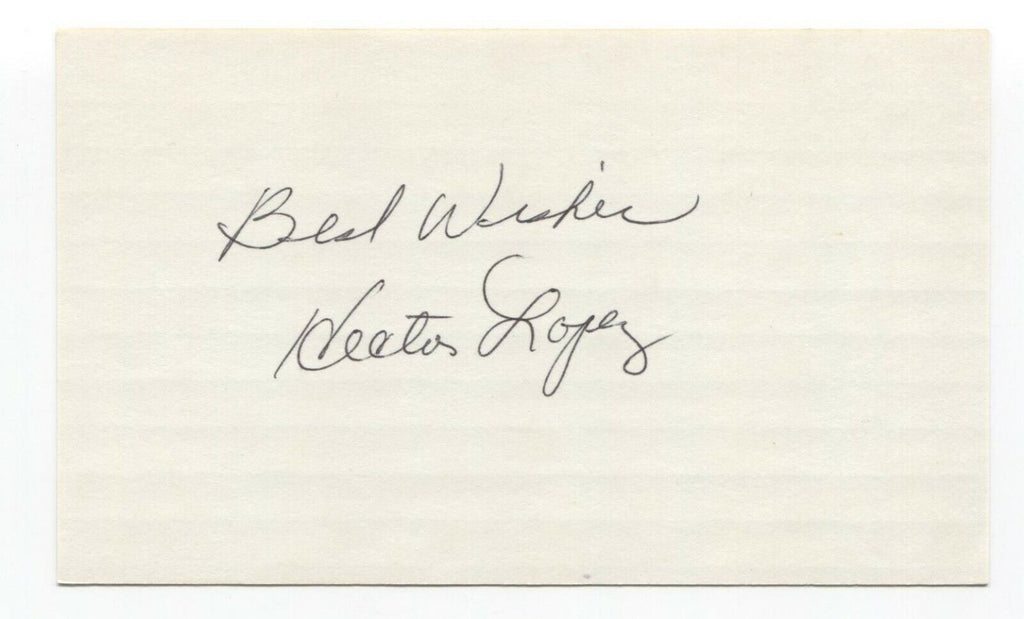 Best Wishes
Hector Lopez